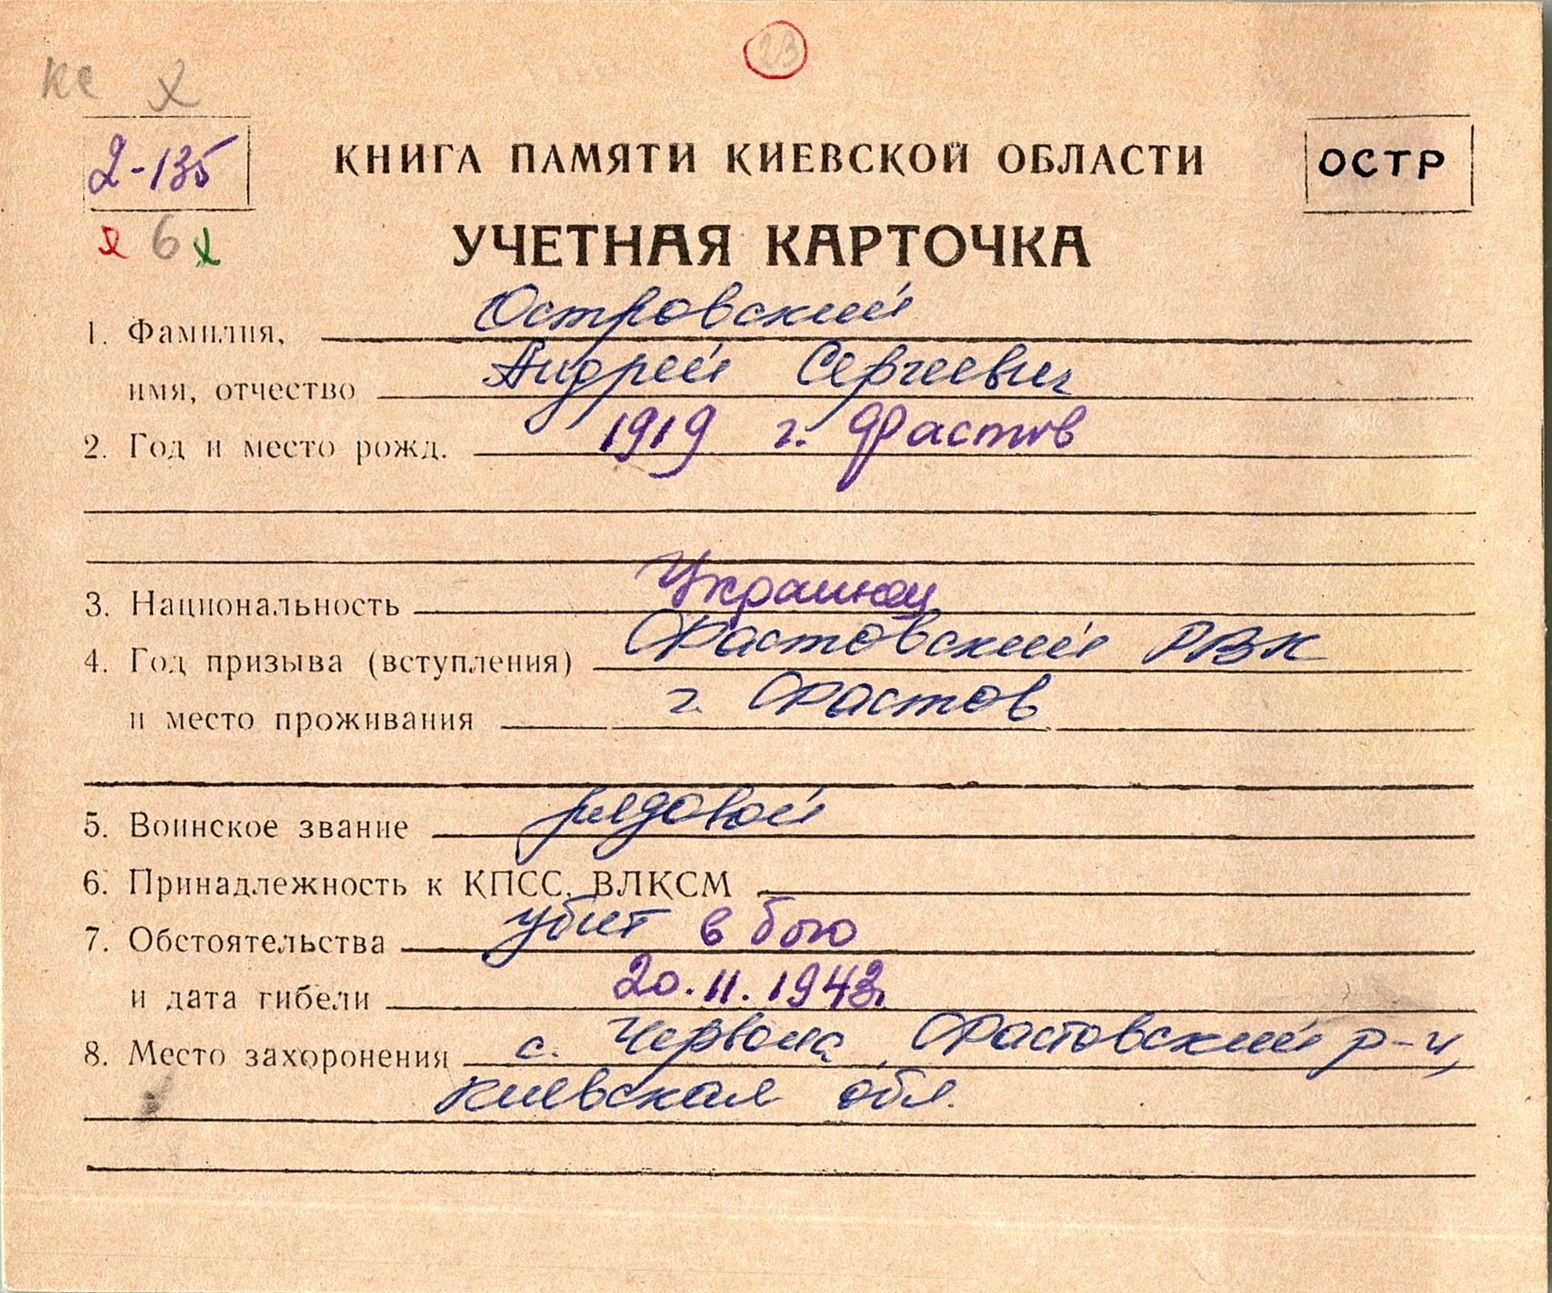 23
КС
2-135
КНИГА ПАМЯТИ КИЕВСКОЙ ОБЛАСТИ
ОСТР
6
УЧЕТНАЯ КАРТОЧКА
1. Фамилия, Островский
имя, отчество Андрей Сергеевич
2. Год и место рожд. 1919 г. Фастов
3. Национальность Украинец
4. Год призыва (вступления) Фастовский РВК
и место проживания г. Фастов
5. Воинское звание рядовой
6. Принадлежность к КПСС, ВЛКСМ
7. Обстоятельства убит в бою
и дата гибели 20.11.1943
8. Место захоронения с. Червона, Фастовский р-н,
Киевская обл.